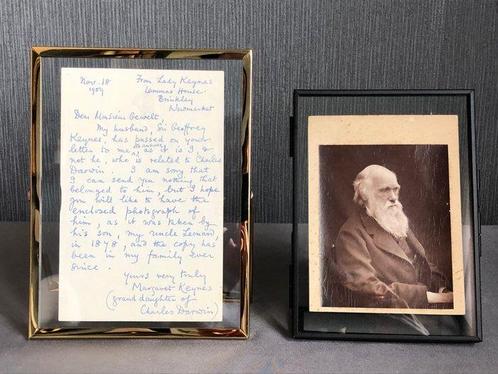 Nov. 18
1959
From Lady Keynes
Lammas House
Brinkley
Newmarket
Dear Monsieur
My husband, Sir Geoffrey
Keynes, has passed on your
letter to me, because as it is I, &
not he, who is related to Charles
Darwin. I am sorry that
I can send you nothing that
belonged to him, but I hope
you will like to have the
enclosed photograph of
him, as it was taken by
his son, my uncle Leonard,
in 1878, and the copy has
been in my family ever
since.
Yours very truly
Margaret Keynes
(grand daughter of
Charles Darwin)